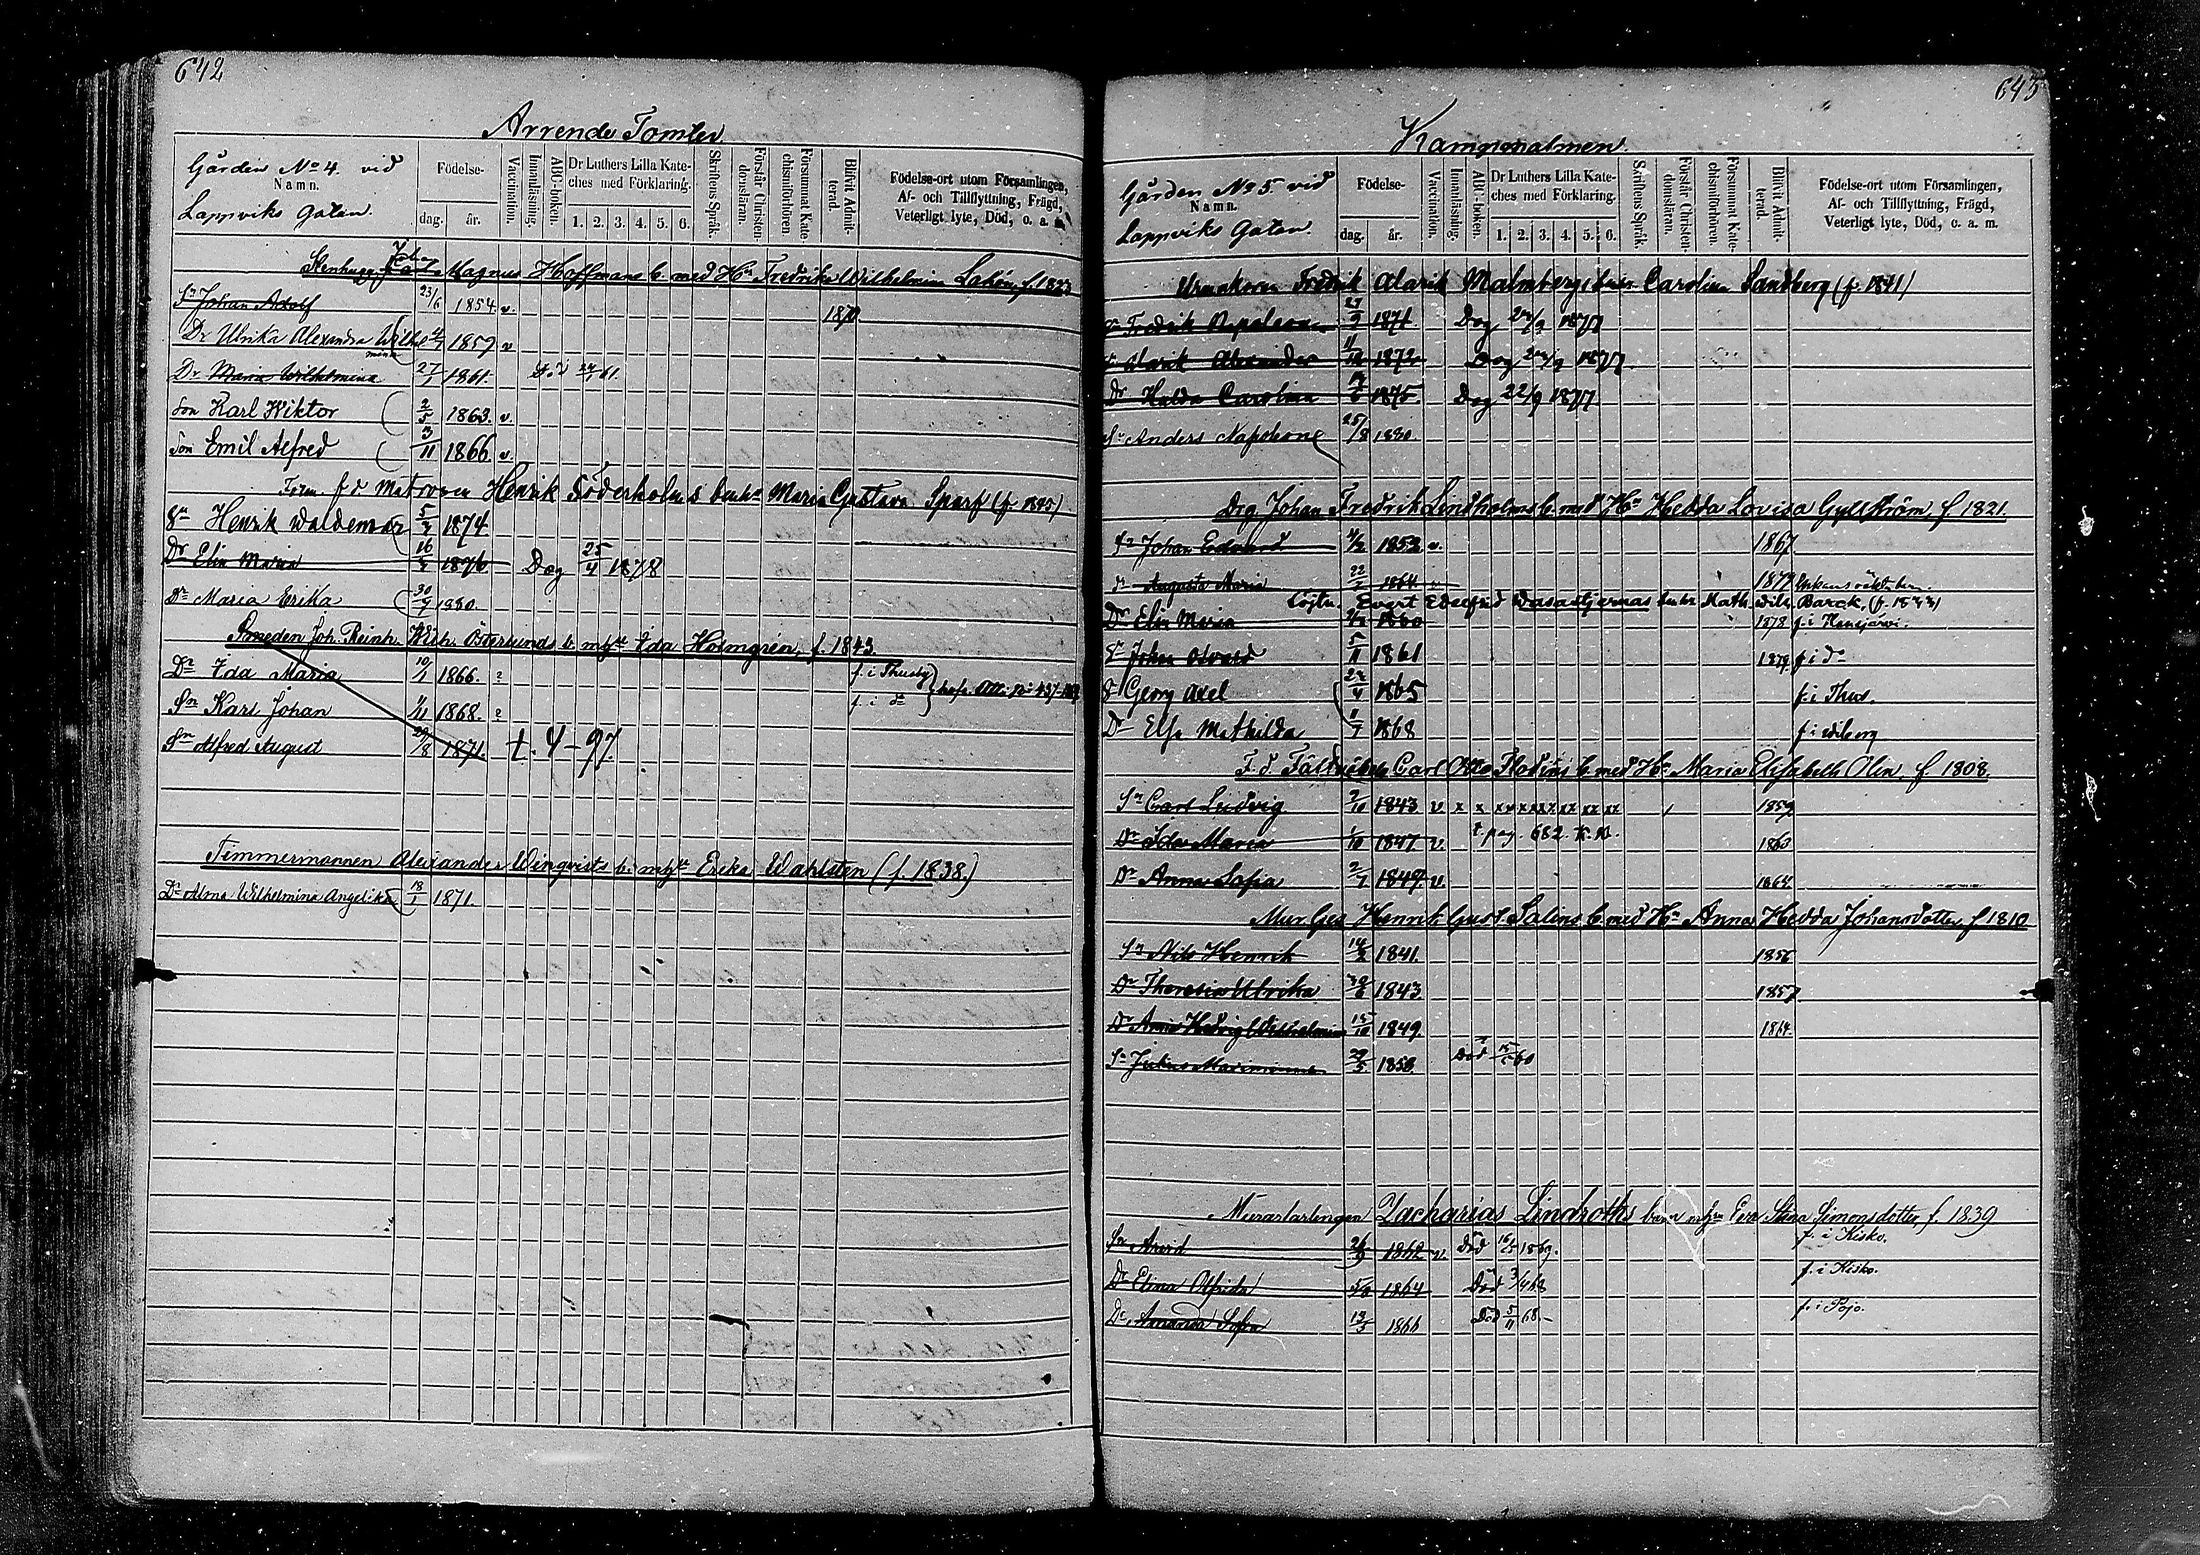 642
Arrende Tomter
Gården No 4. vid
Namn.
Lappviks Gatan.
Födelse-
dag. år.
Vaccination.
Innanläsning.
ABC-boken.
Dr Luthers Lilla Kate-
ches med Förklaring.
1. 2. 3. 4. 5. 6.
Skriftens Språk.
Förstår Christen-
domsläran.
Försummat Kate-
chismiförhören.
Blifvit Admit-
terad.
Födelse-ort utom Församlingen,
Af- och Tillflyttning, Frägd,
Veterligt lyte, Död, o. a. m.
Stenhugg. Magnus Hoffmans b. med Hu Fredrika Wilhelmina f. 1823
Sn Johan Adolf 23/6 1854. v. 1870
Dr Ulrika Alexandra Wilhel
mina 1859 v
Dr Maria Wilhelmina 27/1 1861. 61.
Son Karl Wiktor 2/5 1863. v.
Son Emil Alfred 3/11 1866. v.
f d Matrosen Henrik Söderholms barn Maria Gustava Sparf (f. 1845)
Sn Henrik Waldemar 1874
Dr Elin Maria 1876 Dog 25/4 1878
Dr Maria Erika 30/7 1880.
Smeden Joh. Reinh. Wilh. Österlunds b. m hu Ida Holmgrén, f. 1843
Dr Ida Maria 10/1 1866. ? f. i Thusby
Sn Karl Johan 1868. ? f. i do
Sn Alfred August 1871. t. 4-97.
Timmermannen Alexander Winqvists b. m hu Erika Wahlsten (f. 1838.)
Dr Alma Wilhelmina Angelika 18/1 1871.
643
Kampmalmen.
Gården No 5 vid
Namn.
Lappviks Gatan.
Födelse-
dag. år.
Vaccination.
Innanläsning.
ABC-boken.
Dr Luthers Lilla Kate-
ches med Förklaring.
1. 2. 3. 4. 5. 6.
Skriftens Språk.
Förstår Christen-
domsläran.
Försummat Kate-
chismiförhören.
Blifvit Admit-
terad.
Födelse-ort utom Församlingen,
Af- och Tillflyttning, Frägd,
Veterligt lyte, Död, o. a. m.
Urmakaren Fredrik Alarik Malmbergs Carolina Sandberg (f. 1841)
Sn Fredrik Napoleon 1871. Dog 1877
Sn Alarik Alexander 1872 Dog 1877.
Dr Hulda Carolina 1875 Dog 22/9 1877.
Sn Anders Napoleon 25/8 1880.
Drg. Johan Fredrik Lindholms b. med Hu Hedda Lovisa Gyllström, f. 1821.
Sn Johan Edvard 1853 v. 1867
Dr Augusta Maria 22/2 1864.
Löjtn. Evert Edelfrid Wasastjernas Math. Wilh. Barck,
Dr Elin Maria 1860 1878
Sn Johan Edvard 5/11 1861 1879. f. i do
Sn Georg Axel 1865 f. i Thus.
Dr Elsa Mathilda 11/7 1868 f. i Wiborg
F. d Fältväbeln Carl Otto Flodins b. med Hu Maria Elisabeth Olin, f. 1808.
Sn Carl Ludvig 2/10 1843 v x x x x x x x x x x 1859
Dr Ida Maria 1/10 1847 v. t. pag. 682. 1863
Dr Anna Sofia 2/7 1849. v. 1864.
Mur. Ges. Henrik Gust. Salins b. med Hu Anna Hedda Johansdotter, f. 1810
Sn Nils Henrik 1841. 1856
Dr Theresia Ulrika 30/6 1843 1857
Dr Hedvig Wilhelmina 15/10 1849 1864.
Sn Julius 1850 Död 60
Murarlärlingen Zacharias Lindroths barn m hu Eva Stina Simonsdotter, f. 1839
Sn Arvid 1862 v. död 1869. f. i Kisko.
Dr Elina Alfrida 1864 Död f. i Kisko.
Dr Amanda Sofia 1866 Död 5/11 68. f. i Pojo.